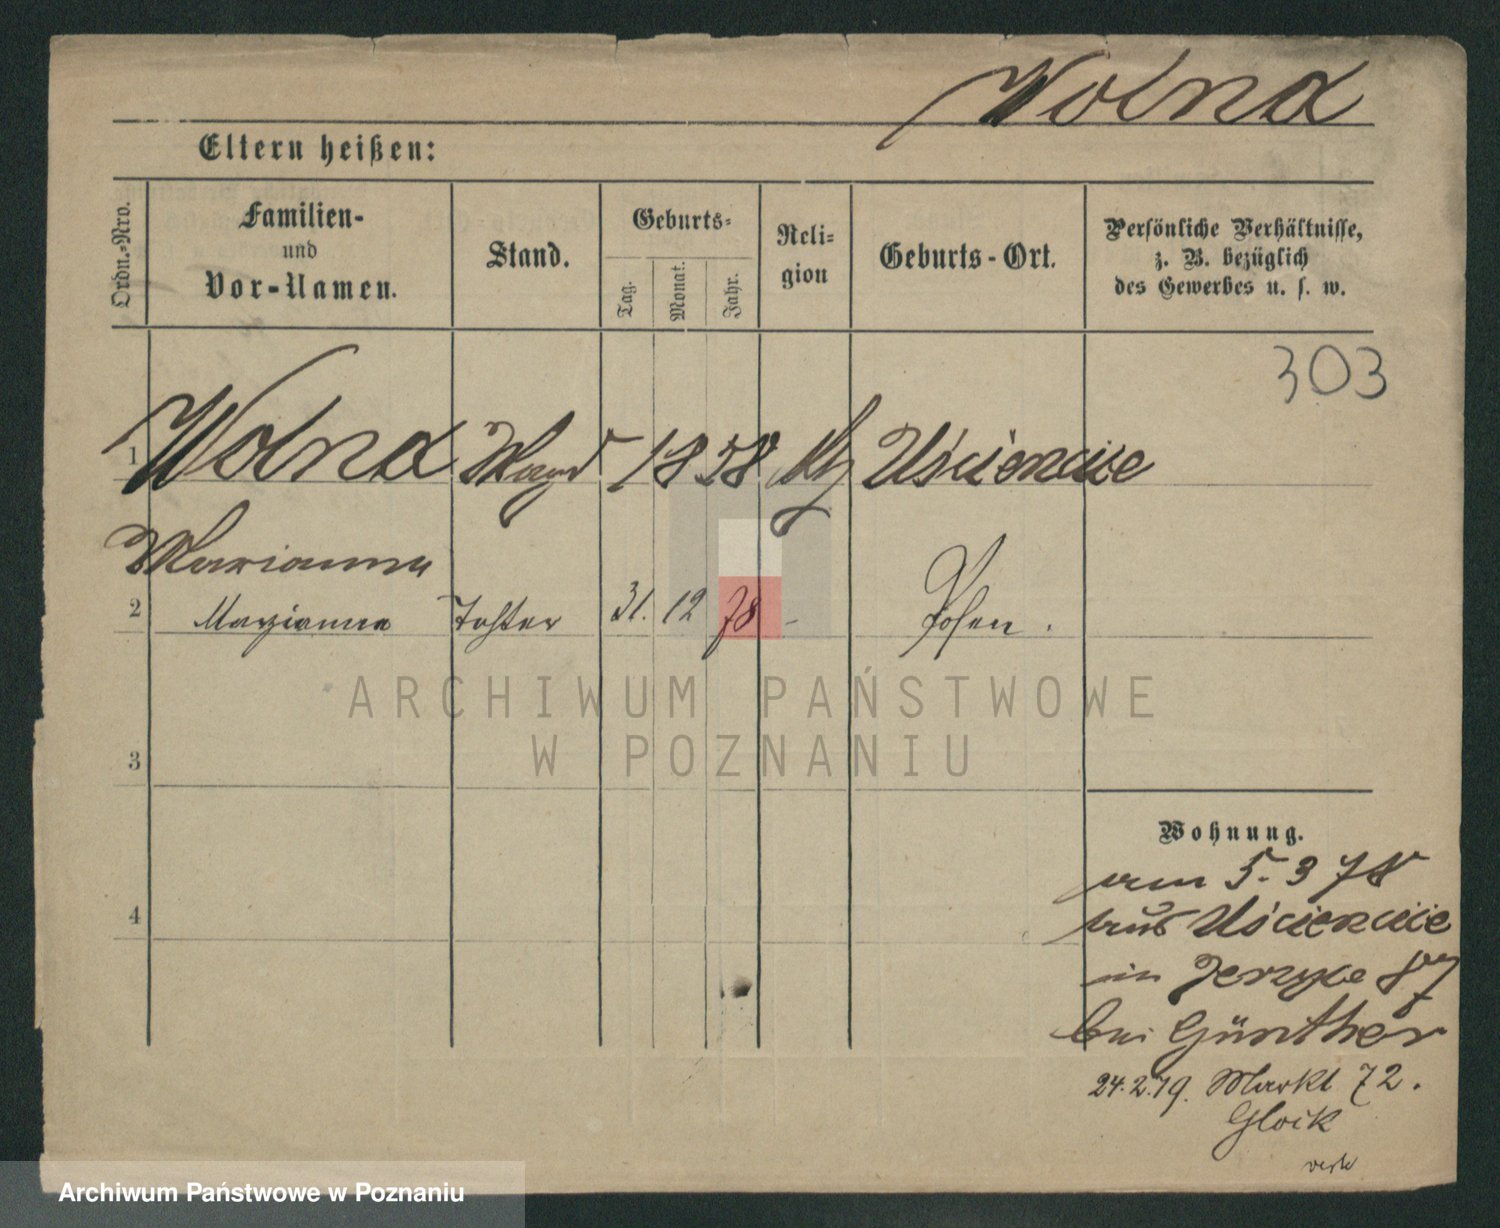 Wolna
Eltern heißen:
Ordn.-Nro.
Familien-
und
Vor-Namen.
Stand.
Geburts-
Tag.
Monat.
Jahr.
Reli-
gion
Geburts-Ort.
Persönliche Verhältnisse,
z. B. bezüglich
des Gewerbes u. s. w.
303
1 Wolna Magd 1858 Uścięcice
Marianna
2 Marianna Tochter 31. 12 78 - Posen.
ARCHIWUM PAŃSTWOWE
W POZNANIU
3
Wohnung.
4
5. 3 78
aus Uścięcice
in Jerzyce 87
bei Günther
24.2.79. Markt 72.
Archiwum Państwowe w Poznaniu